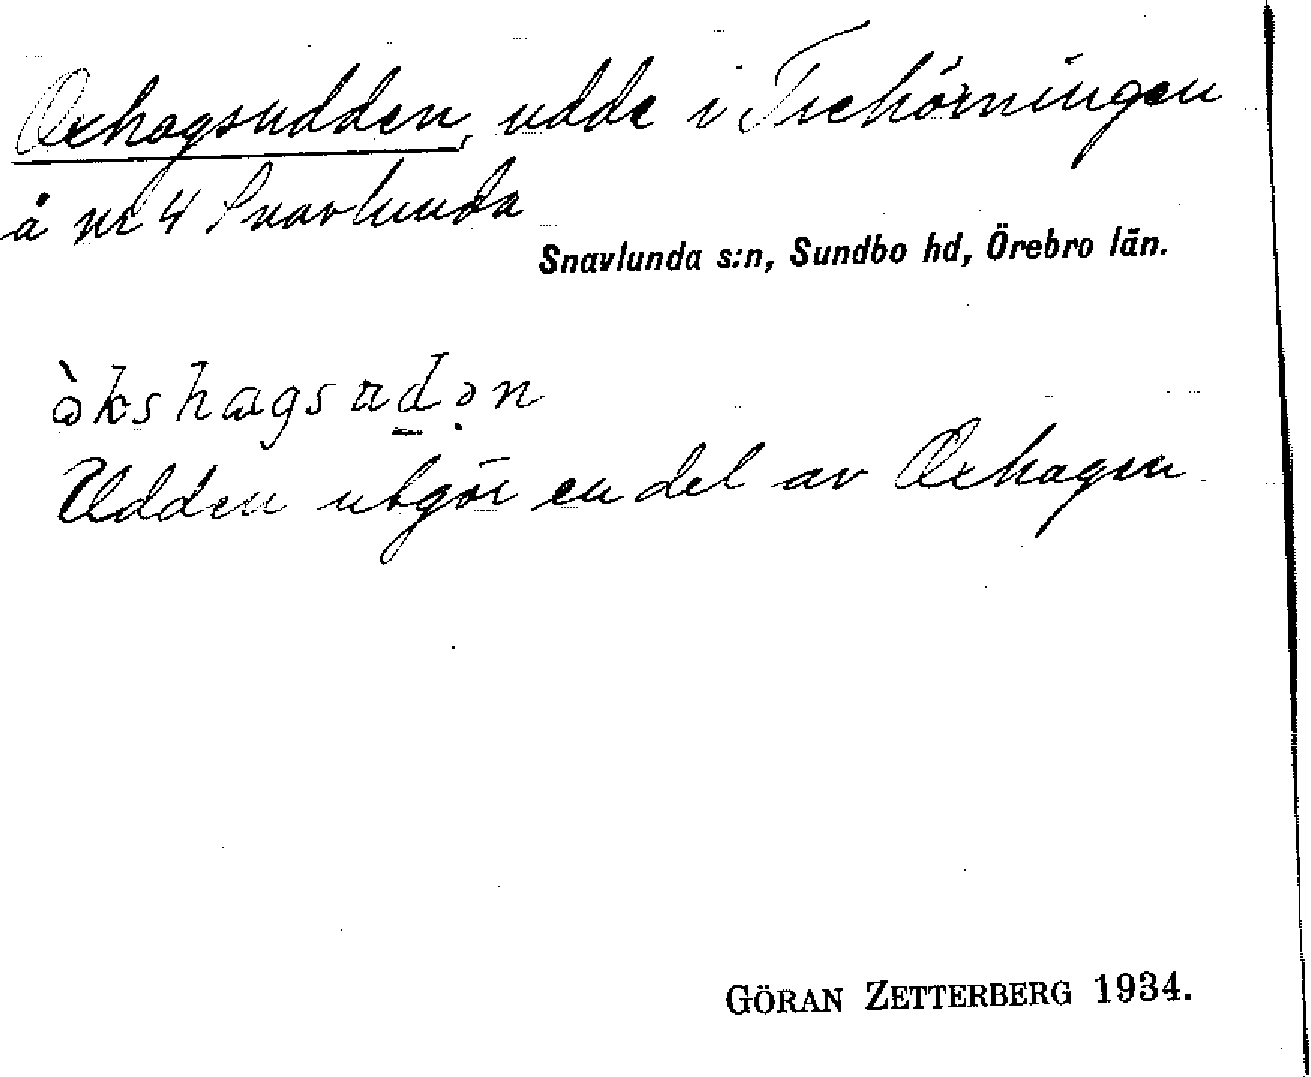 Oxhagsudden, udde i Trehörningen
å nr 4 Snavlunda
Snavlunda s:n, Sundbo hd, Örebro län.
Udden utgör en del av Oxhagen
GÖRAN ZETTERBERG 1934.